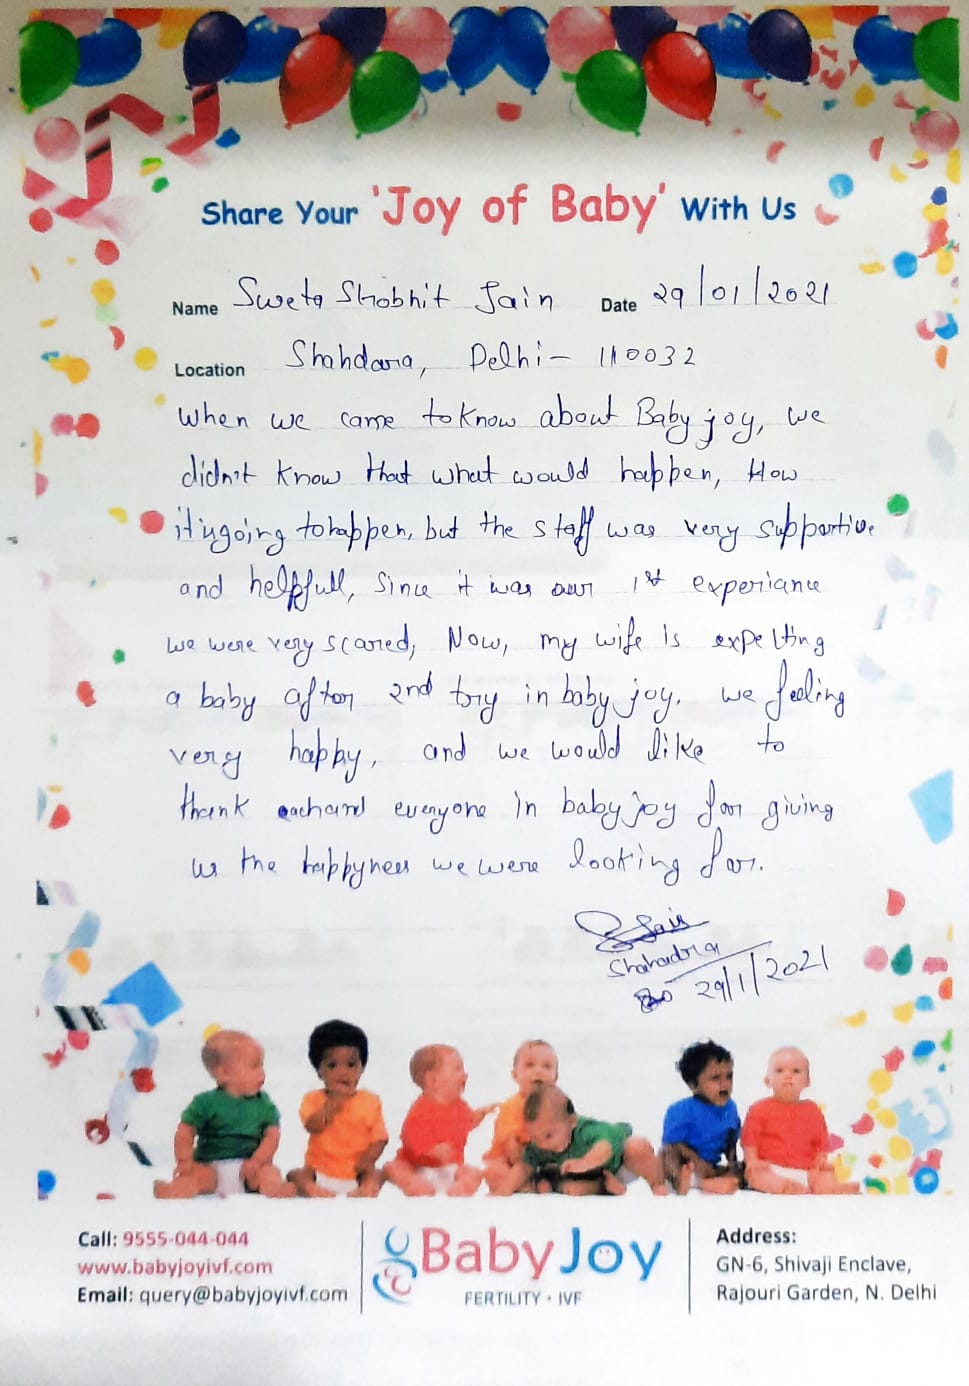 Share Your 'Joy of Baby' With Us
Name Sweta Shobhit Jain Date 29/01/2021
Location Shahdara, Delhi- 110032
When we came to know about Baby joy, we
didn't know that what would happen, How
it is going to happen, but the staff was very supportive
and helpfull, since it was our 1st experiance
we were very scared, Now, my wife is expecting
a baby after 2nd try in baby joy. we feeling
very happy, and we would like to
thank each and everyone in baby joy for giving
us the happyness we were looking for.
Jain
29/1/2021
Call: 9555-044-044
www.babyjoyivf.com
Email: query@babyjoyivf.com
Baby Joy
FERTILITY · IVF
Address:
GN-6, Shivaji Enclave,
Rajouri Garden, N. Delhi